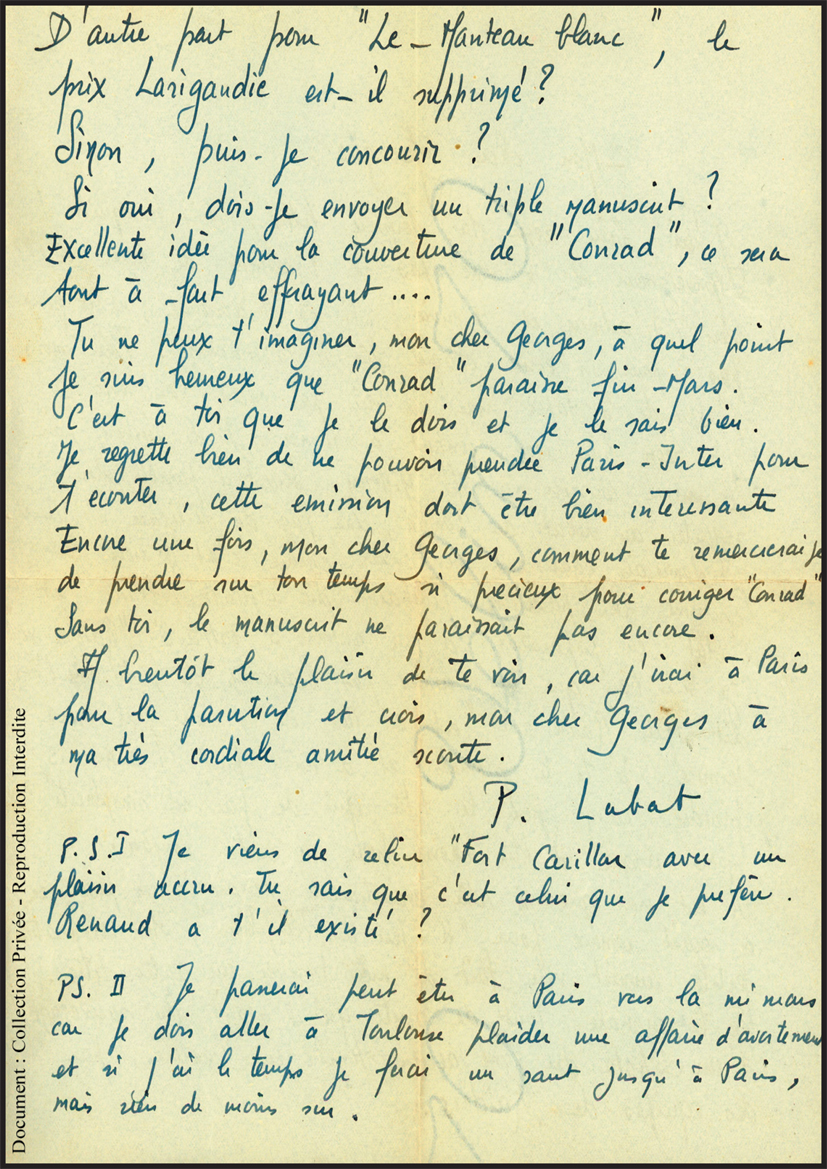 D'autre part pour "Le-Manteau blanc", le
prix Larigaudie est-il supprimé ?
Sinon, puis-je concourir ?
Si oui, dois-je envoyer un triple manuscrit ?
Excellente idée pour la couverture de "Conrad", ce sera
tout à -fait effrayant ....
Tu ne peux t'imaginer, mon cher Georges, à quel point
je suis heureux que "Conrad" paraisse fin -Mars.
C'est à toi que je le dois et je le sais bien.
Je regrette bien de ne pouvoir prendre Paris-Inter pour
t'écouter, cette emission doit être bien interessante
Encore une fois, mon cher Georges, comment te remercierai je
de prendre sur ton temps si precieux pour corriger "Conrad"
Sans toi, le manuscrit ne paraissait pas encore.
A bientôt le plaisir de te voir, car j'irai à Paris
pour la parution et crois, mon cher Georges à
ma très cordiale amitié scoute.
P. Labat
P.S.I Je viens de relire "Fort Carillon avec un
plaisir accru. Tu sais que c'est celui que je prefère.
Renaud a t'il existé ?
PS. II Je passerai peut être à Paris vers la mi mars
car je dois aller à Toulouse plaider une affaire d'avortement
et si j'ai le temps je ferai un saut jusqu'à Paris,
mais rien de moins sur.
Document : Collection Privée - Reproduction Interdite